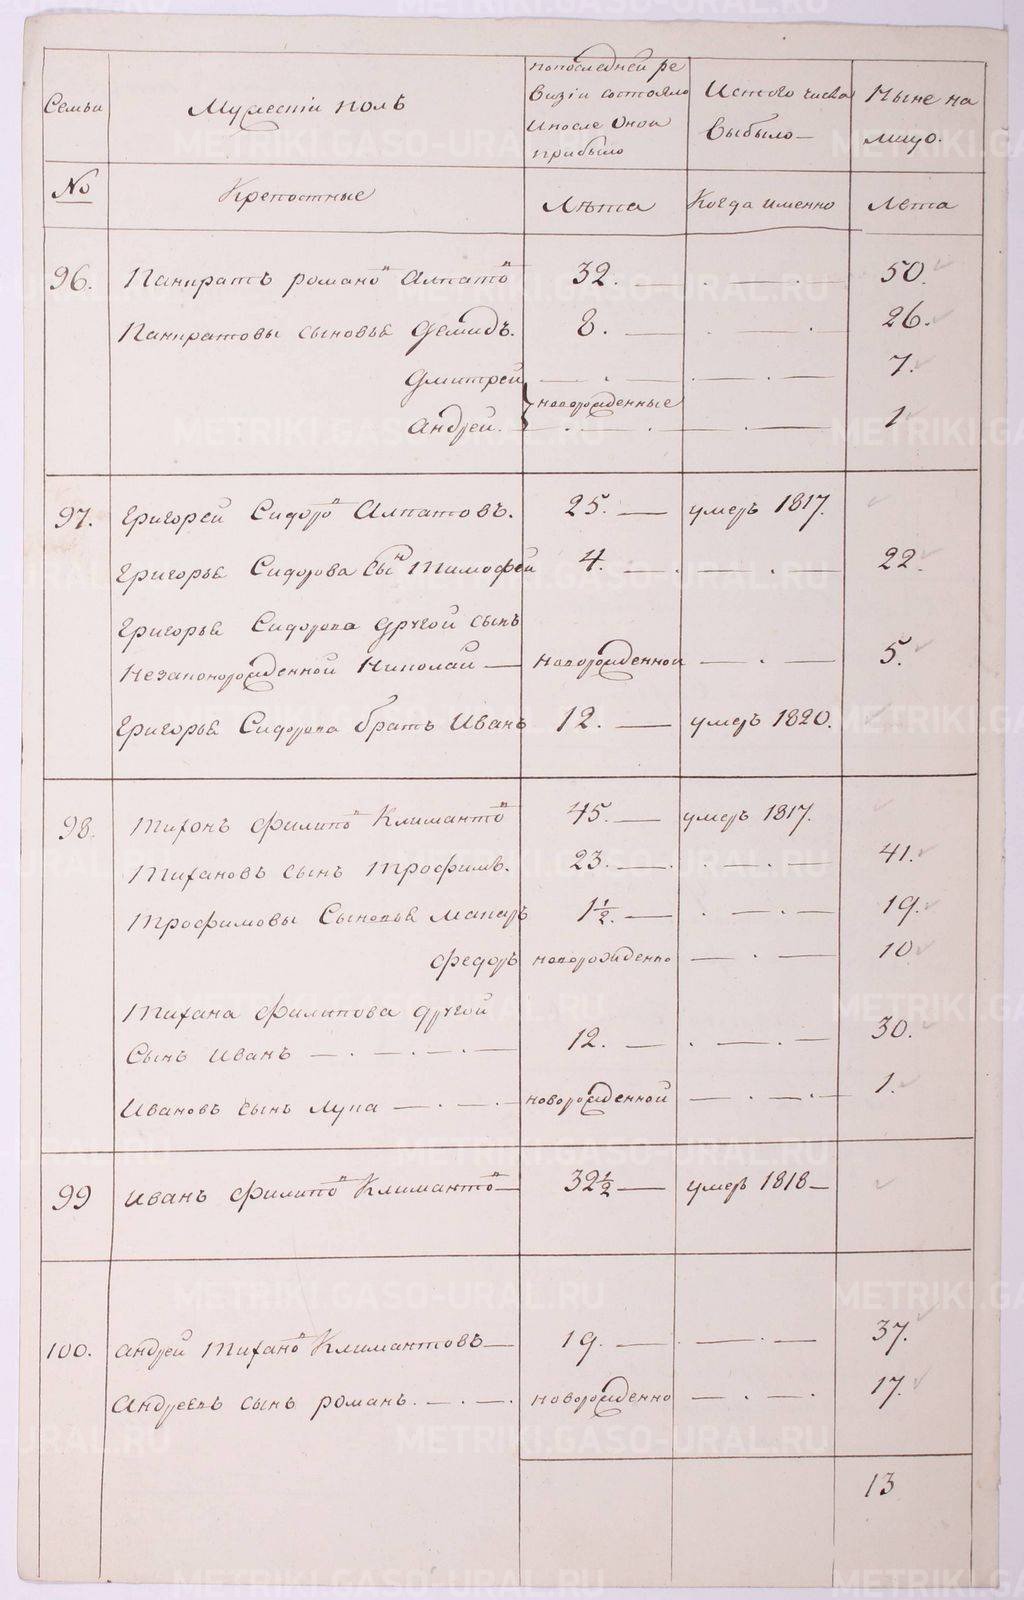 Семьи
Мужескiй полъ
по последней ре
визiи состояло
и после оной
прибыло
Из того числа
выбыло
Ныне на
лицо.
№
Крепостные
Лѣта
Когда именно
Лета
96. Панкратъ Романовъ Алпатовъ 32. 50.
Панкратовы сыновья Демидъ. 8. 26.
Дмитрей 7.
новорожденные
Андрей. 1
97. Григорей Сидоровъ Алпатовъ. 25. умеръ 1817.
Григорья Сидорова сынъ Тимофей 4. 22.
Григорья Сидорова другой сынъ
Незаконорожденной Николай новорожденной 5.
Григорья Сидорова братъ Иванъ 12. умеръ 1820.
98. Тихонъ Филиповъ Климантовъ 45. умеръ 1817.
Тихановъ сынъ Трофимъ. 23. 41.
Трофимовы сыновья Макаръ 1½. 19.
Федоръ новорожденно 10
Тихана Филипова другой
сынъ Иванъ 12. 30.
Ивановъ сынъ Лупа новорожденной 1.
99 Иванъ Филиповъ Климантовъ 32½ умеръ 1818
100. Андрей Тихановъ Климантовъ 19. 37.
Андреевъ сынъ Романъ. новорожденно 17.
13
METRIKI.GASO-URAL.RU